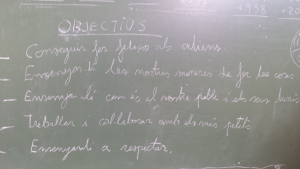 +938
OBJECTIUS
Conseguir fer feliços als alumnes
Ensenyar-li les nostres maneres de fer les coses
Ensenyar-li com és el nostre poble i els seus
Treballar i col·laborar amb els més petits
Ensenyar-li a respectar.